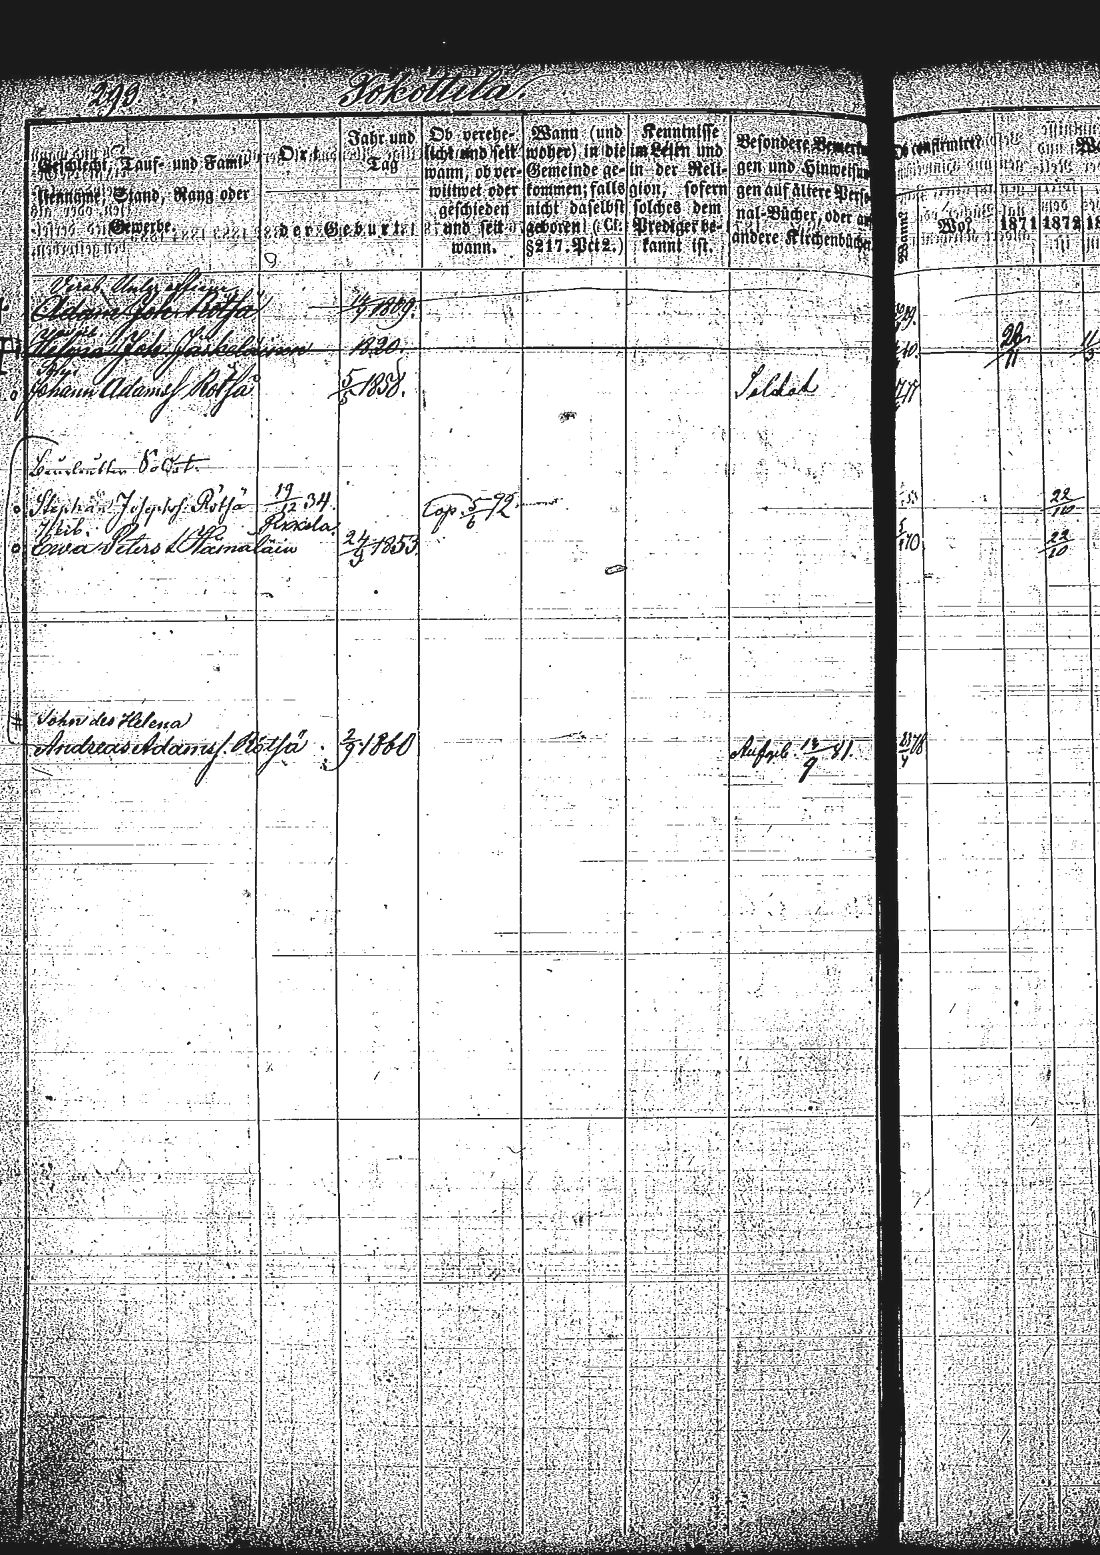 299.
Kokottila.
Geschlecht, Tauf- und Fami-
liennamen, Stand, Rang oder
Gewerbe.
Ort
Jahr und
Tag
der Geburt.
Ob verehe-
licht und seit
wann, ob ver-
wittwet oder
geschieden
und seit
wann.
Wann (und
woher) in die
Gemeinde ge-
kommen; falls
nicht daselbst
geboren (Cf.
§217. Pct 2.)
Kenntnisse
im Lesen und
in der Reli-
gion, sofern
solches dem
Prediger be-
kannt ist.
Besondere Bemerku
gen und Hinweisun
gen auf ältere Perso
nal-Bücher, oder an
andere Kirchenbücher
Ob confirmirt?
Wann?
Wo?
1871 1872
Adam Joh. Rötsä 1809.
Helena Joh. Jäskeläinen 1820. 26/11
Johann Adamss. Rötsä 5/5 1858. Soldat
Stephan Josephs. Rötsä 19/12 34. Cop. 5/6 72 22/10
Weib. Rixkola
Ewa Peters t. Hämäläin 24/9 1853 22/10
Sohn des Helena
Andreas Adamss. Rötsä 2/9 1860 Aufgeb. 13/9 81.